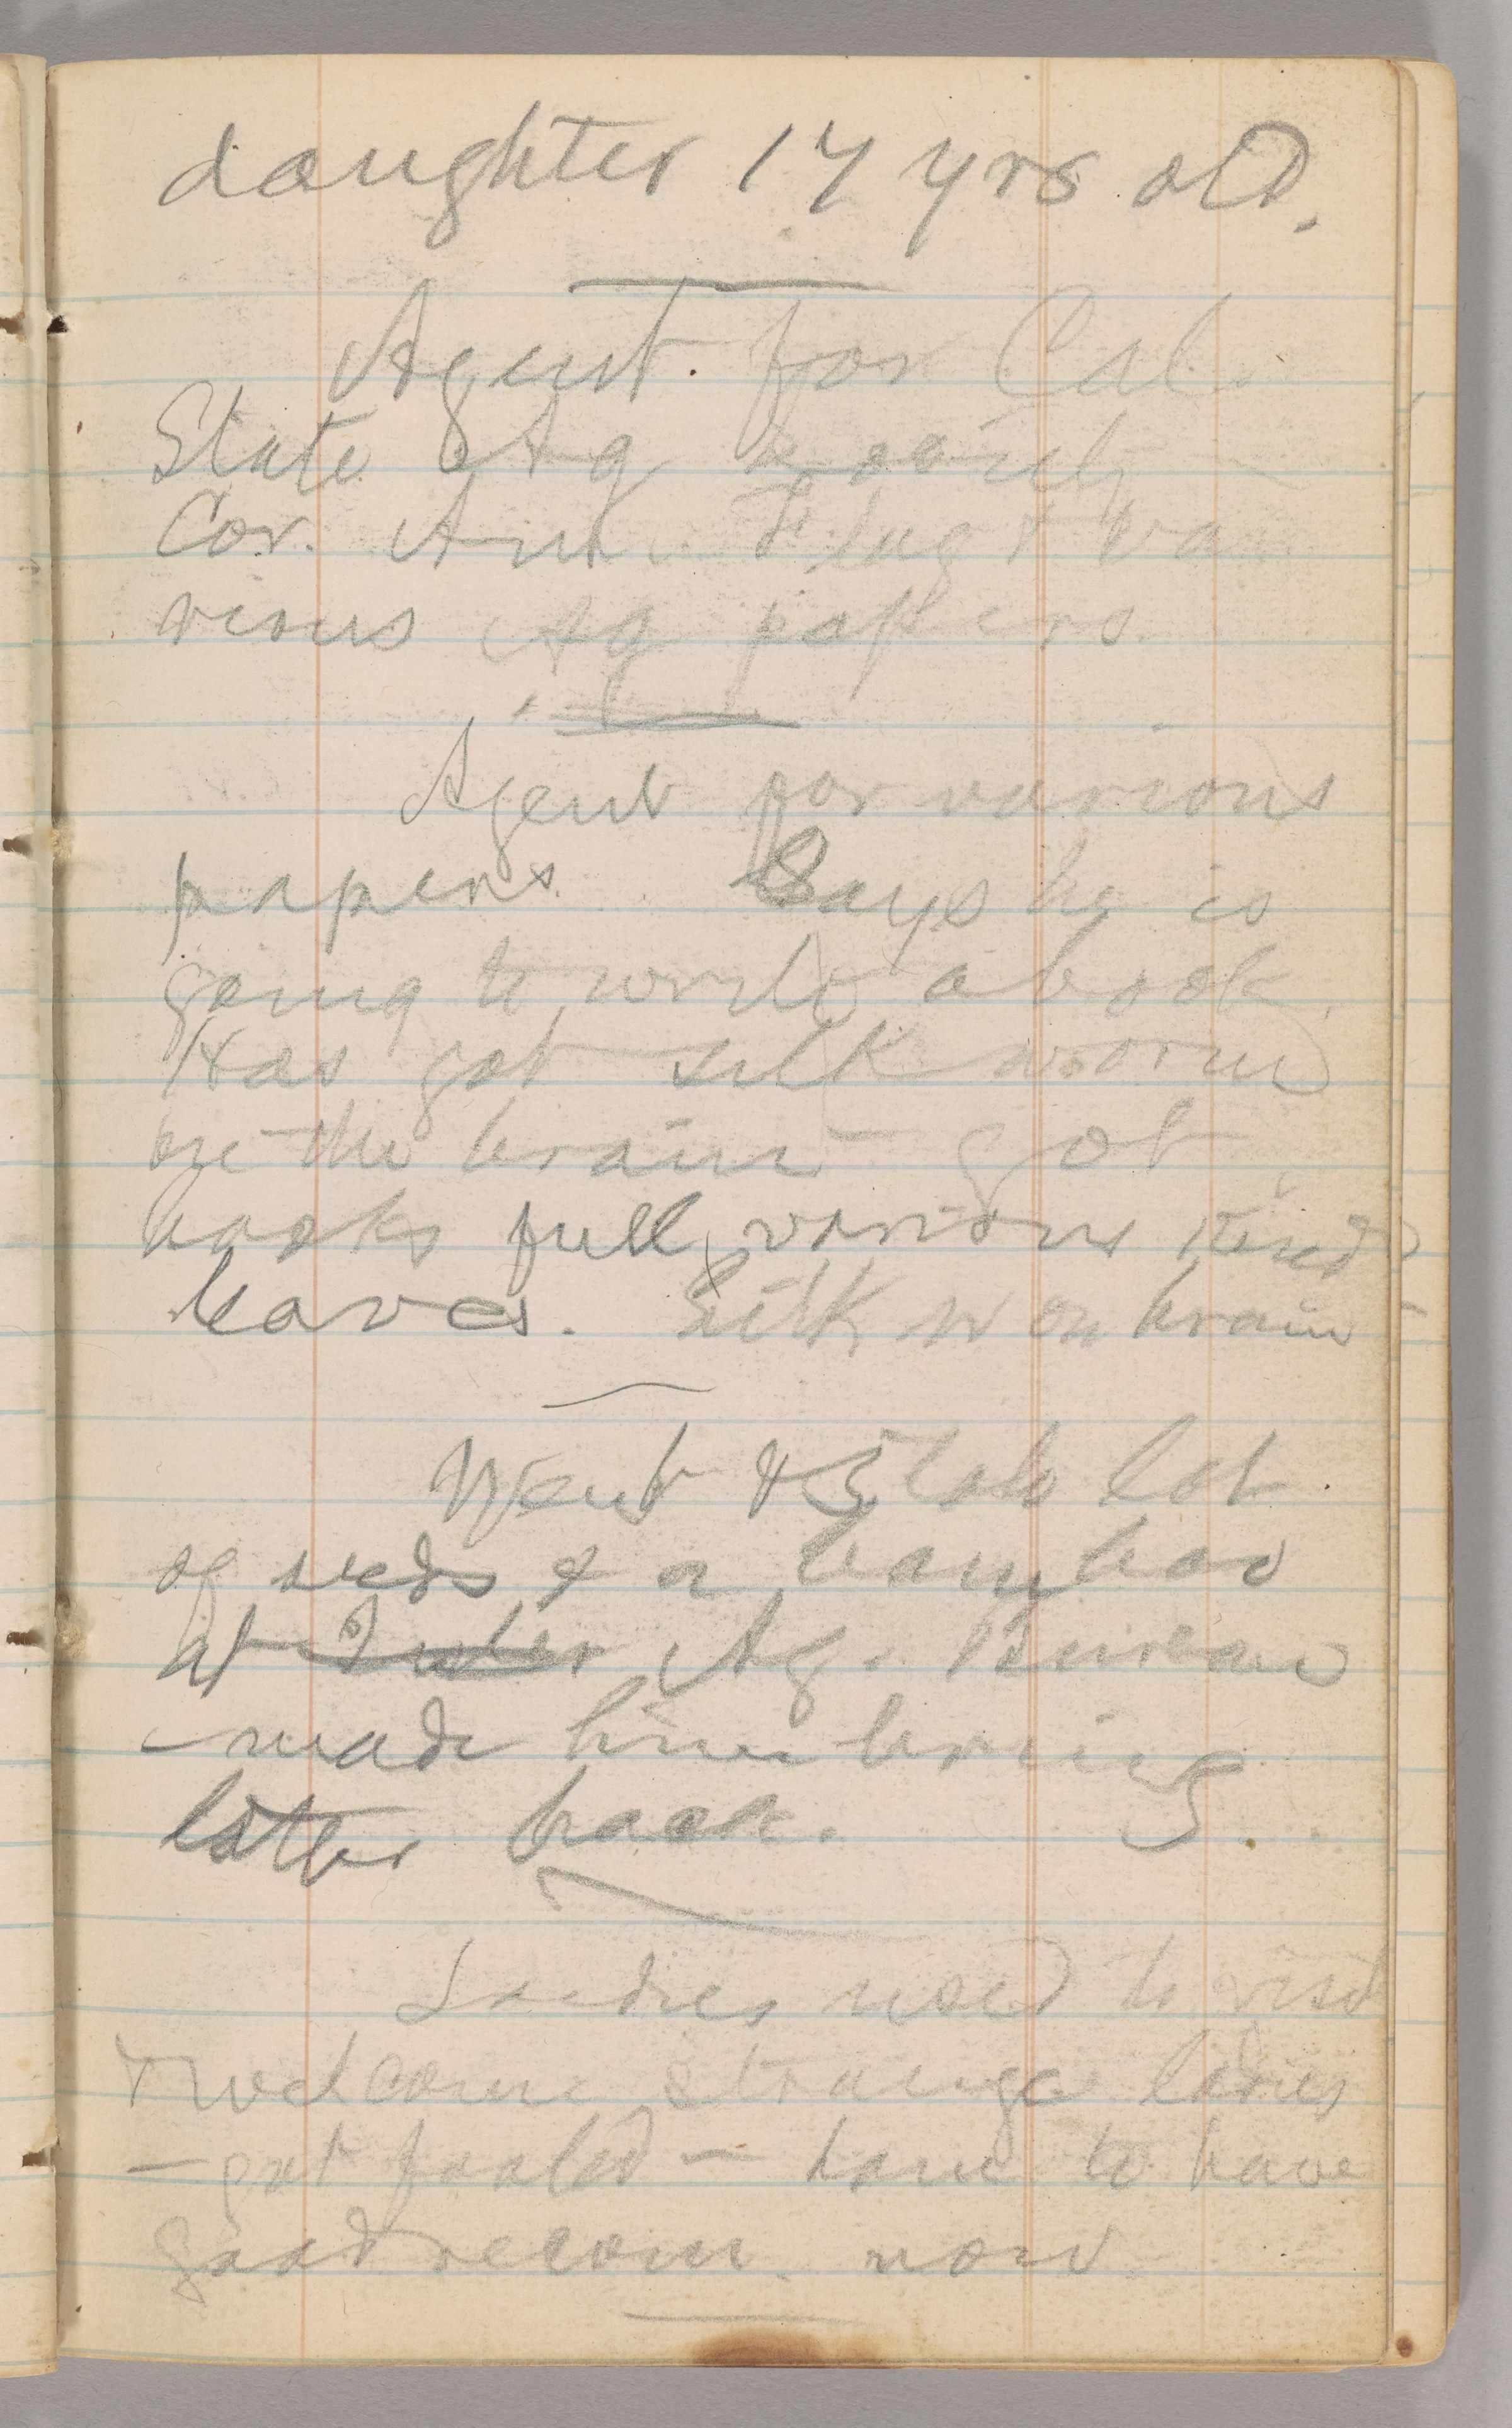 daughter 17 yrs old.
Agent for Cal
State Ag society
Cor. Am. Flag & va
rious Ag papers.
Agent for various
papers. Says he is
going to write a book.
Has got silk worm
on the brain — got
books full various kinds
leaves. Silk w on brain —
Went & stole lot
of seeds & a bamboo
at Ag. Bureau
— made him bring
latter back.
Ladies used to visit
& welcome strange ladies
— got fooled — have to have
good recom. now.